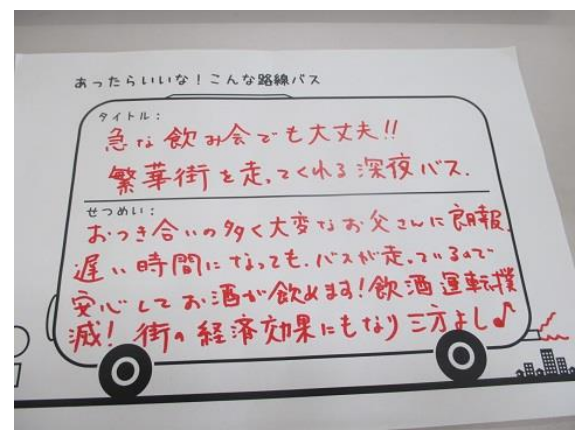 あったらいいな！こんな路線バス
タイトル：
急な飲み会でも大丈夫!!
繁華街を走ってくれる深夜バス.
せつめい：
おつき合いの多く大変なお父さんに朗報.
遅い時間になっても.バスが走っているので
安心してお酒が飲めます!飲酒運転撲
滅!街の経済効果にもなり三方よし♪